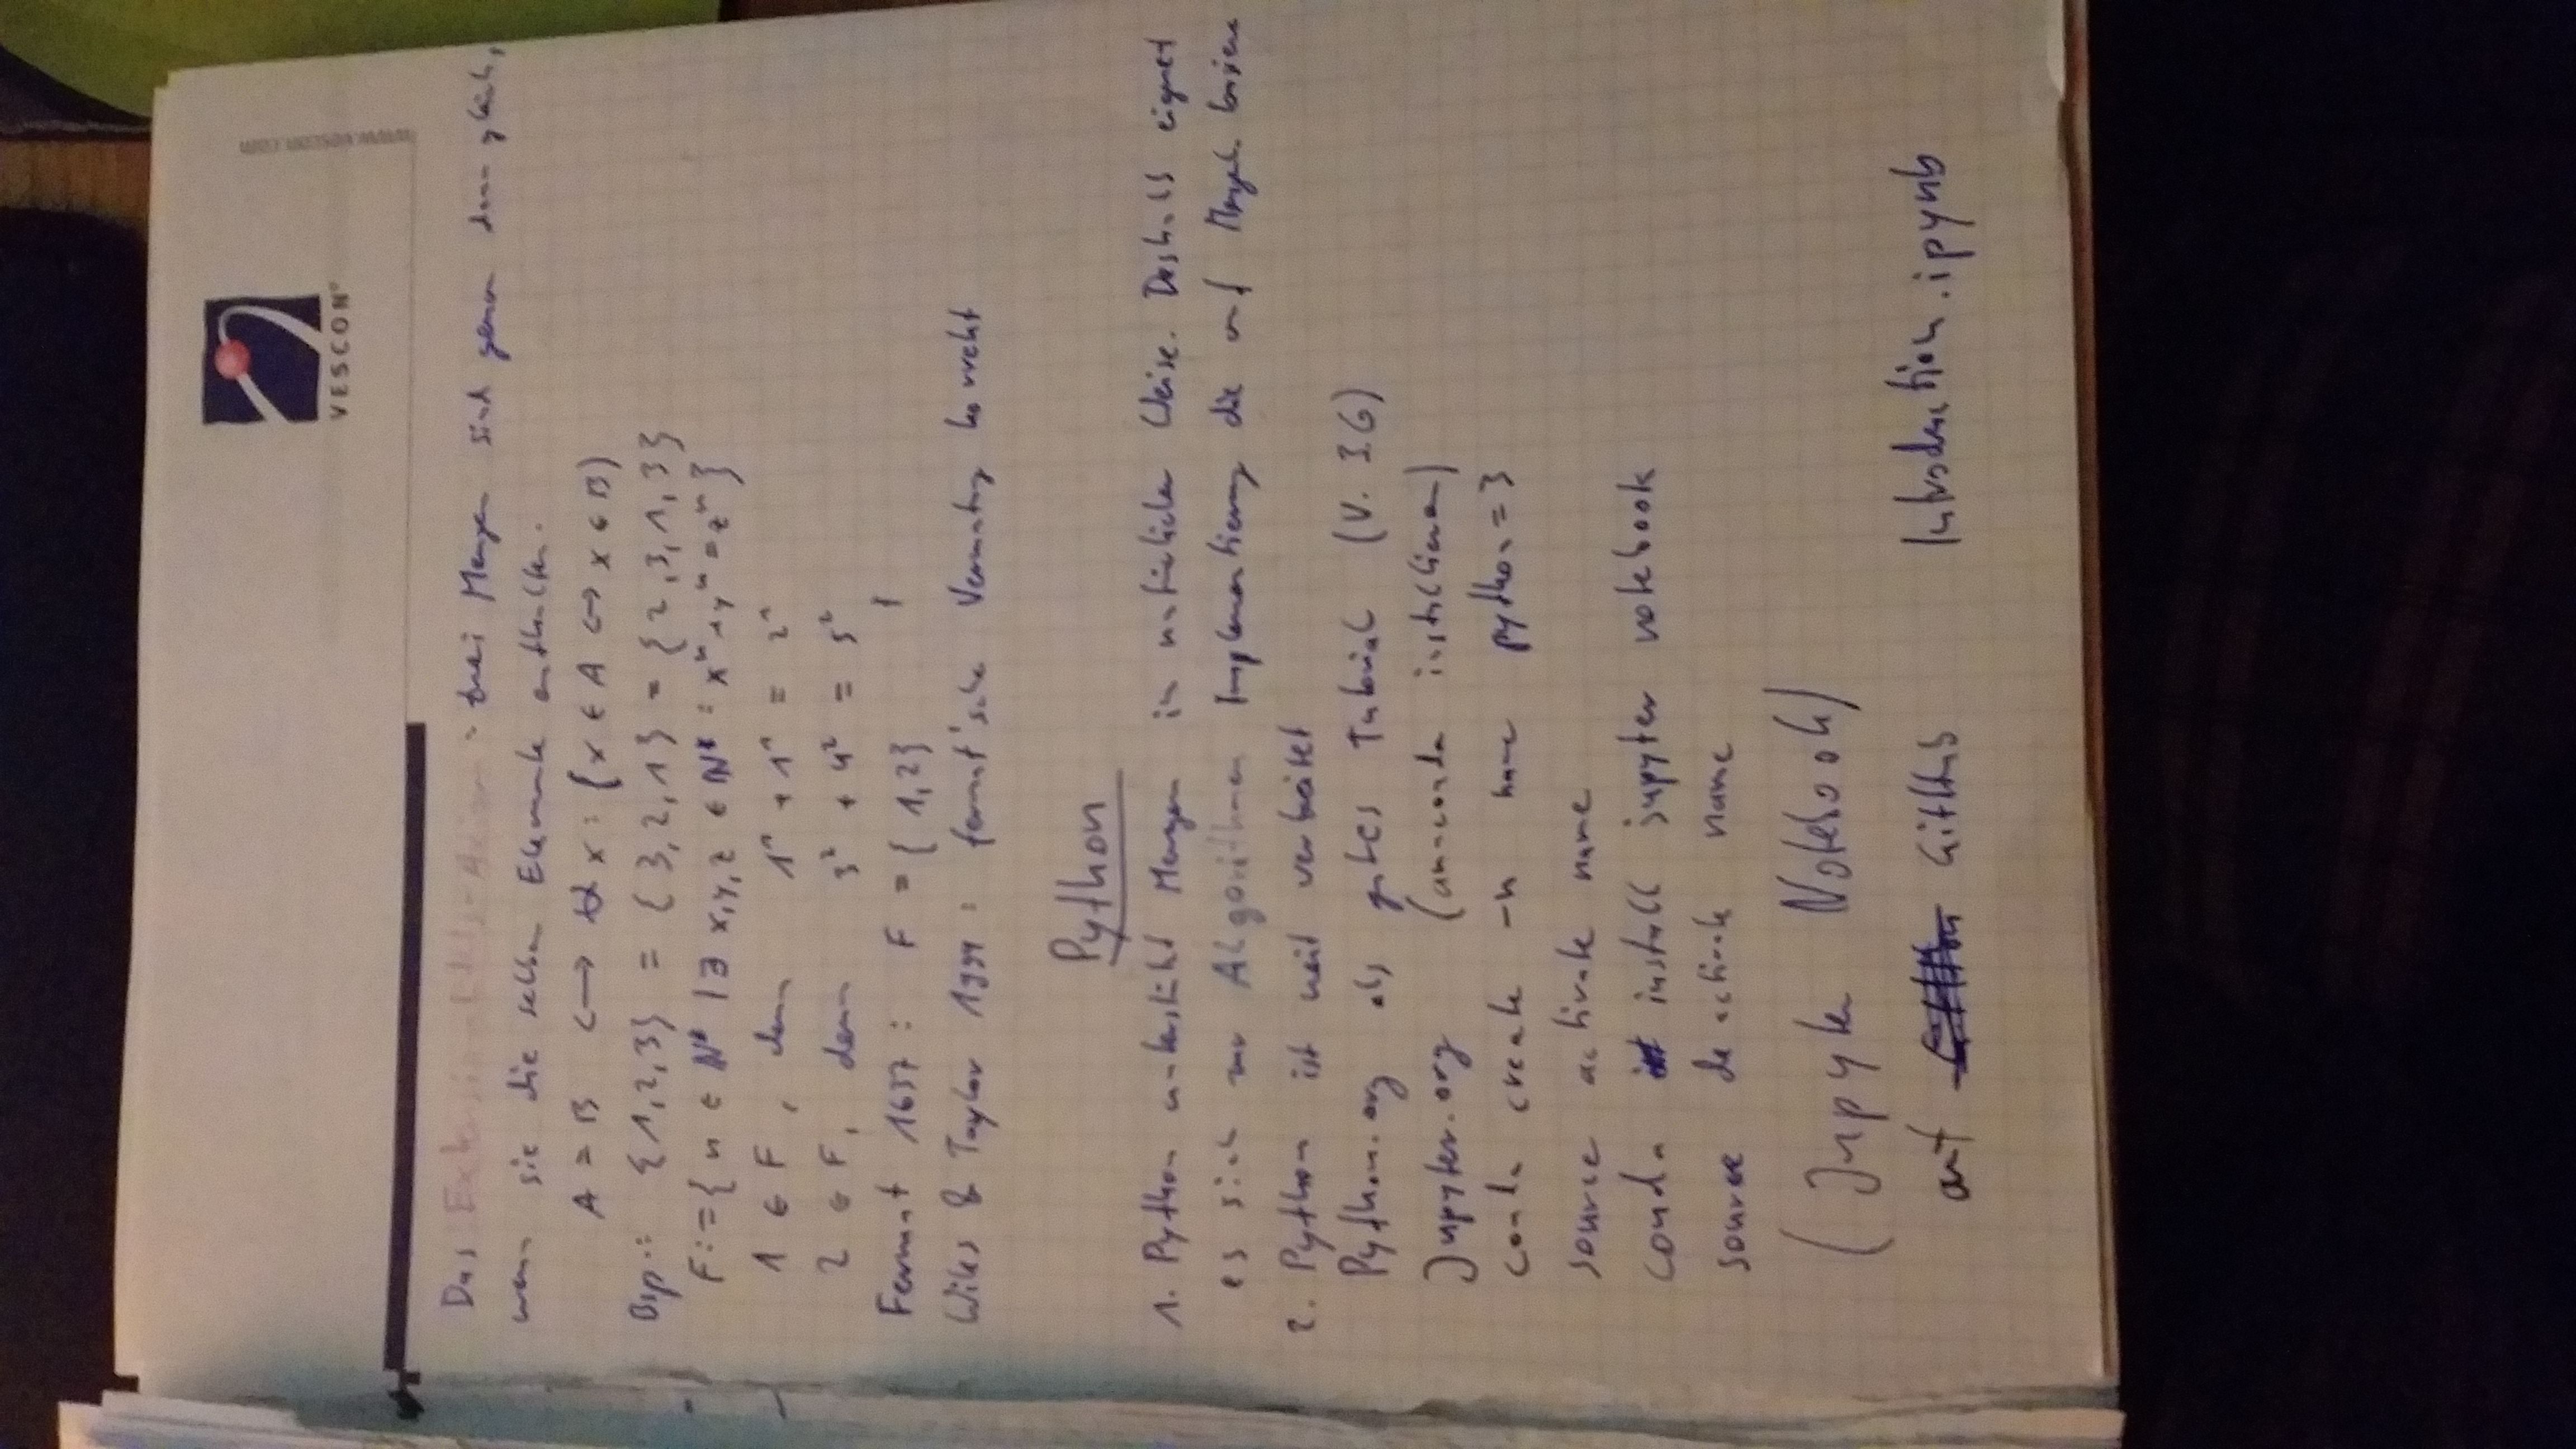 VESCON®
www.vescon.com
Das Extensionalitäts-Axiom: zwei Mengen sind genau dann gleich,
wenn sie die selben Elemente enthalten.
A = B ⟷ ∀ x : (x ∈ A ⟷ x ∈ B)
Bsp.: {1,2,3} = {3,2,1} = {2,3,1,3}
F := { n ∈ ℕ* | ∃ x,y,z ∈ ℕ* : xⁿ + yⁿ = zⁿ }
1 ∈ F, denn 1¹ + 1¹ = 2¹
2 ∈ F, denn 3² + 4² = 5²
Fermat 1637 : F = {1,2}
Wiles & Taylor 1994 : fermat'sche Vermutung korrekt
Python
1. Python unterstützt Mengen in natürlicher Weise. Deshalb eignet
es sich zur Algorithmen Implementierung die auf basieren
2. Python ist weit verbreitet
Python.org als gutes Tutorial (V. 3.6)
Jupyter.org (anaconda installieren)
conda create -n name python=3
source activate name
conda install jupyter notebook
source deactivate name
(Jupyter Notebook)
auf GitHub Introduction.ipynb